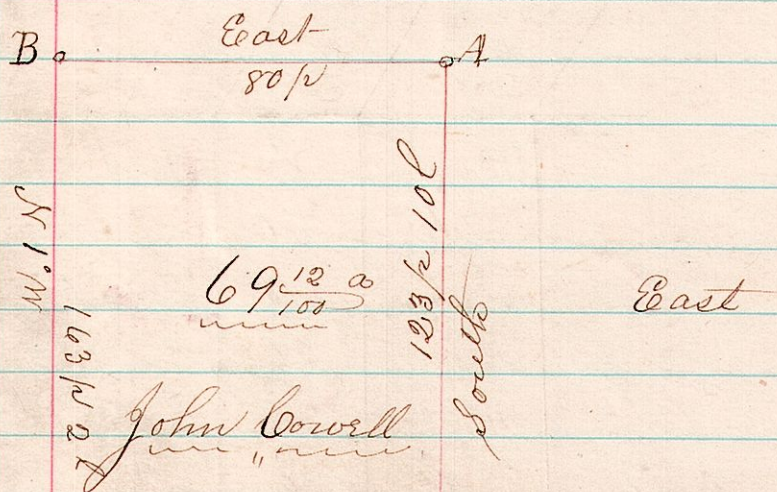 B East A
80 p
N 1° W
163 p 2 l
69 12/100 a
123 p 10 l
South
East
John Cowell